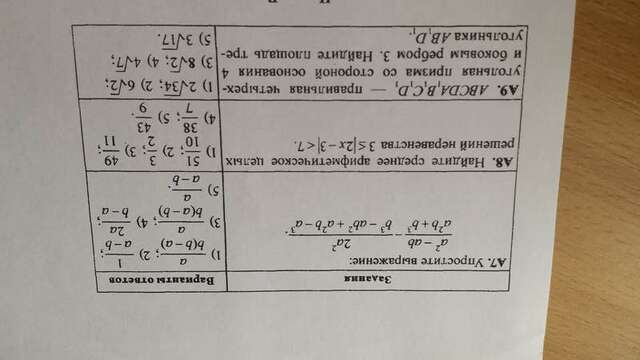 Задания
Варианты ответов
А7. Упростите выражение:
\frac{a^2 - ab}{a^2b + b^3} - \frac{2a^2}{b^3 - ab^2 + a^2b - a^3}.
1) \frac{a}{b(b-a)}; 2) \frac{1}{a-b};
3) \frac{a}{b(a-b)}; 4) \frac{2a}{b-a};
5) \frac{a}{a-b}.
А8. Найдите среднее арифметическое целых
решений неравенства 3 ≤ |2x − 3| < 7.
1) \frac{51}{10}; 2) \frac{3}{2}; 3) \frac{49}{11};
4) \frac{38}{7}; 5) \frac{43}{9}.
А9. ABCDA₁B₁C₁D₁ — правильная четырех-
угольная призма со стороной основания 4
и боковым ребром 3. Найдите площадь тре-
угольника AB₁D₁.
1) 2√34; 2) 6√2;
3) 8√2; 4) 4√7;
5) 3√17.